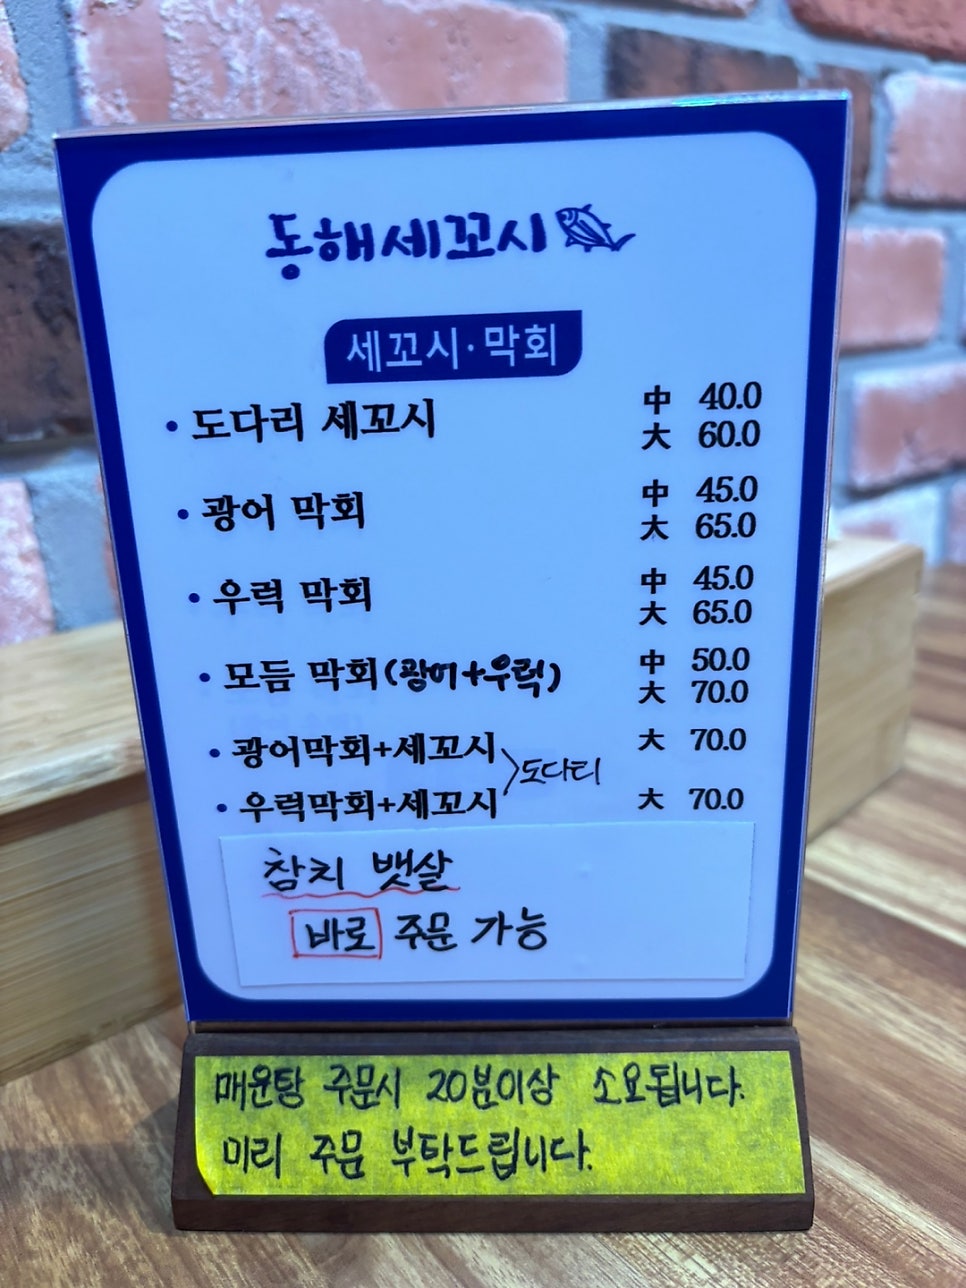 동해세꼬시
세꼬시·막회
• 도다리 세꼬시 中 40.0
大 60.0
• 광어 막회 中 45.0
大 65.0
• 우럭 막회 中 45.0
大 65.0
• 모듬 막회(광어+우럭) 中 50.0
大 70.0
• 광어막회+세꼬시 大 70.0
도다리
• 우럭막회+세꼬시 大 70.0
참치 뱃살
바로 주문 가능
매운탕 주문시 20분이상 소요됩니다.
미리 주문 부탁드립니다.